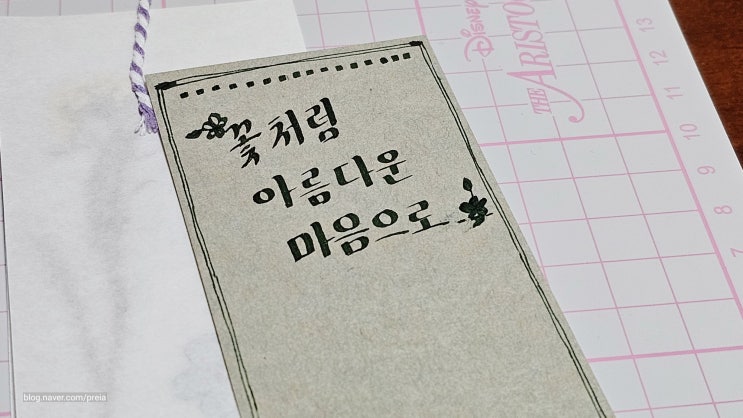 꽃처럼
아름다운
마음으로
DISNEY
THE ARISTO
13
12
11
10
9
8
7
blog.naver.com/preia